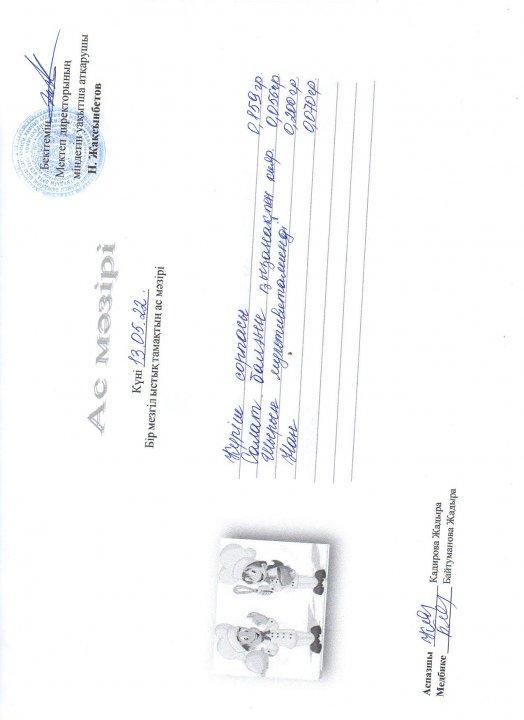 Бекітемін
Мектеп директорының
міндетін уақытша атқарушы
Н. Жаксынбетов
Ас мәзірі
Күні 13.05.22.
Бір мезгіл ыстық тамақтың ас мәзірі
Күріш сорпасы 0,159 гр
Салат балғын қызанақпен қияр. 0,055 гр
Шырын мультивитаминді 0,200 гр
Нан 0,070 гр
Аспазшы Кадирова Жадыра
Медбике Байтуманова Жадыра